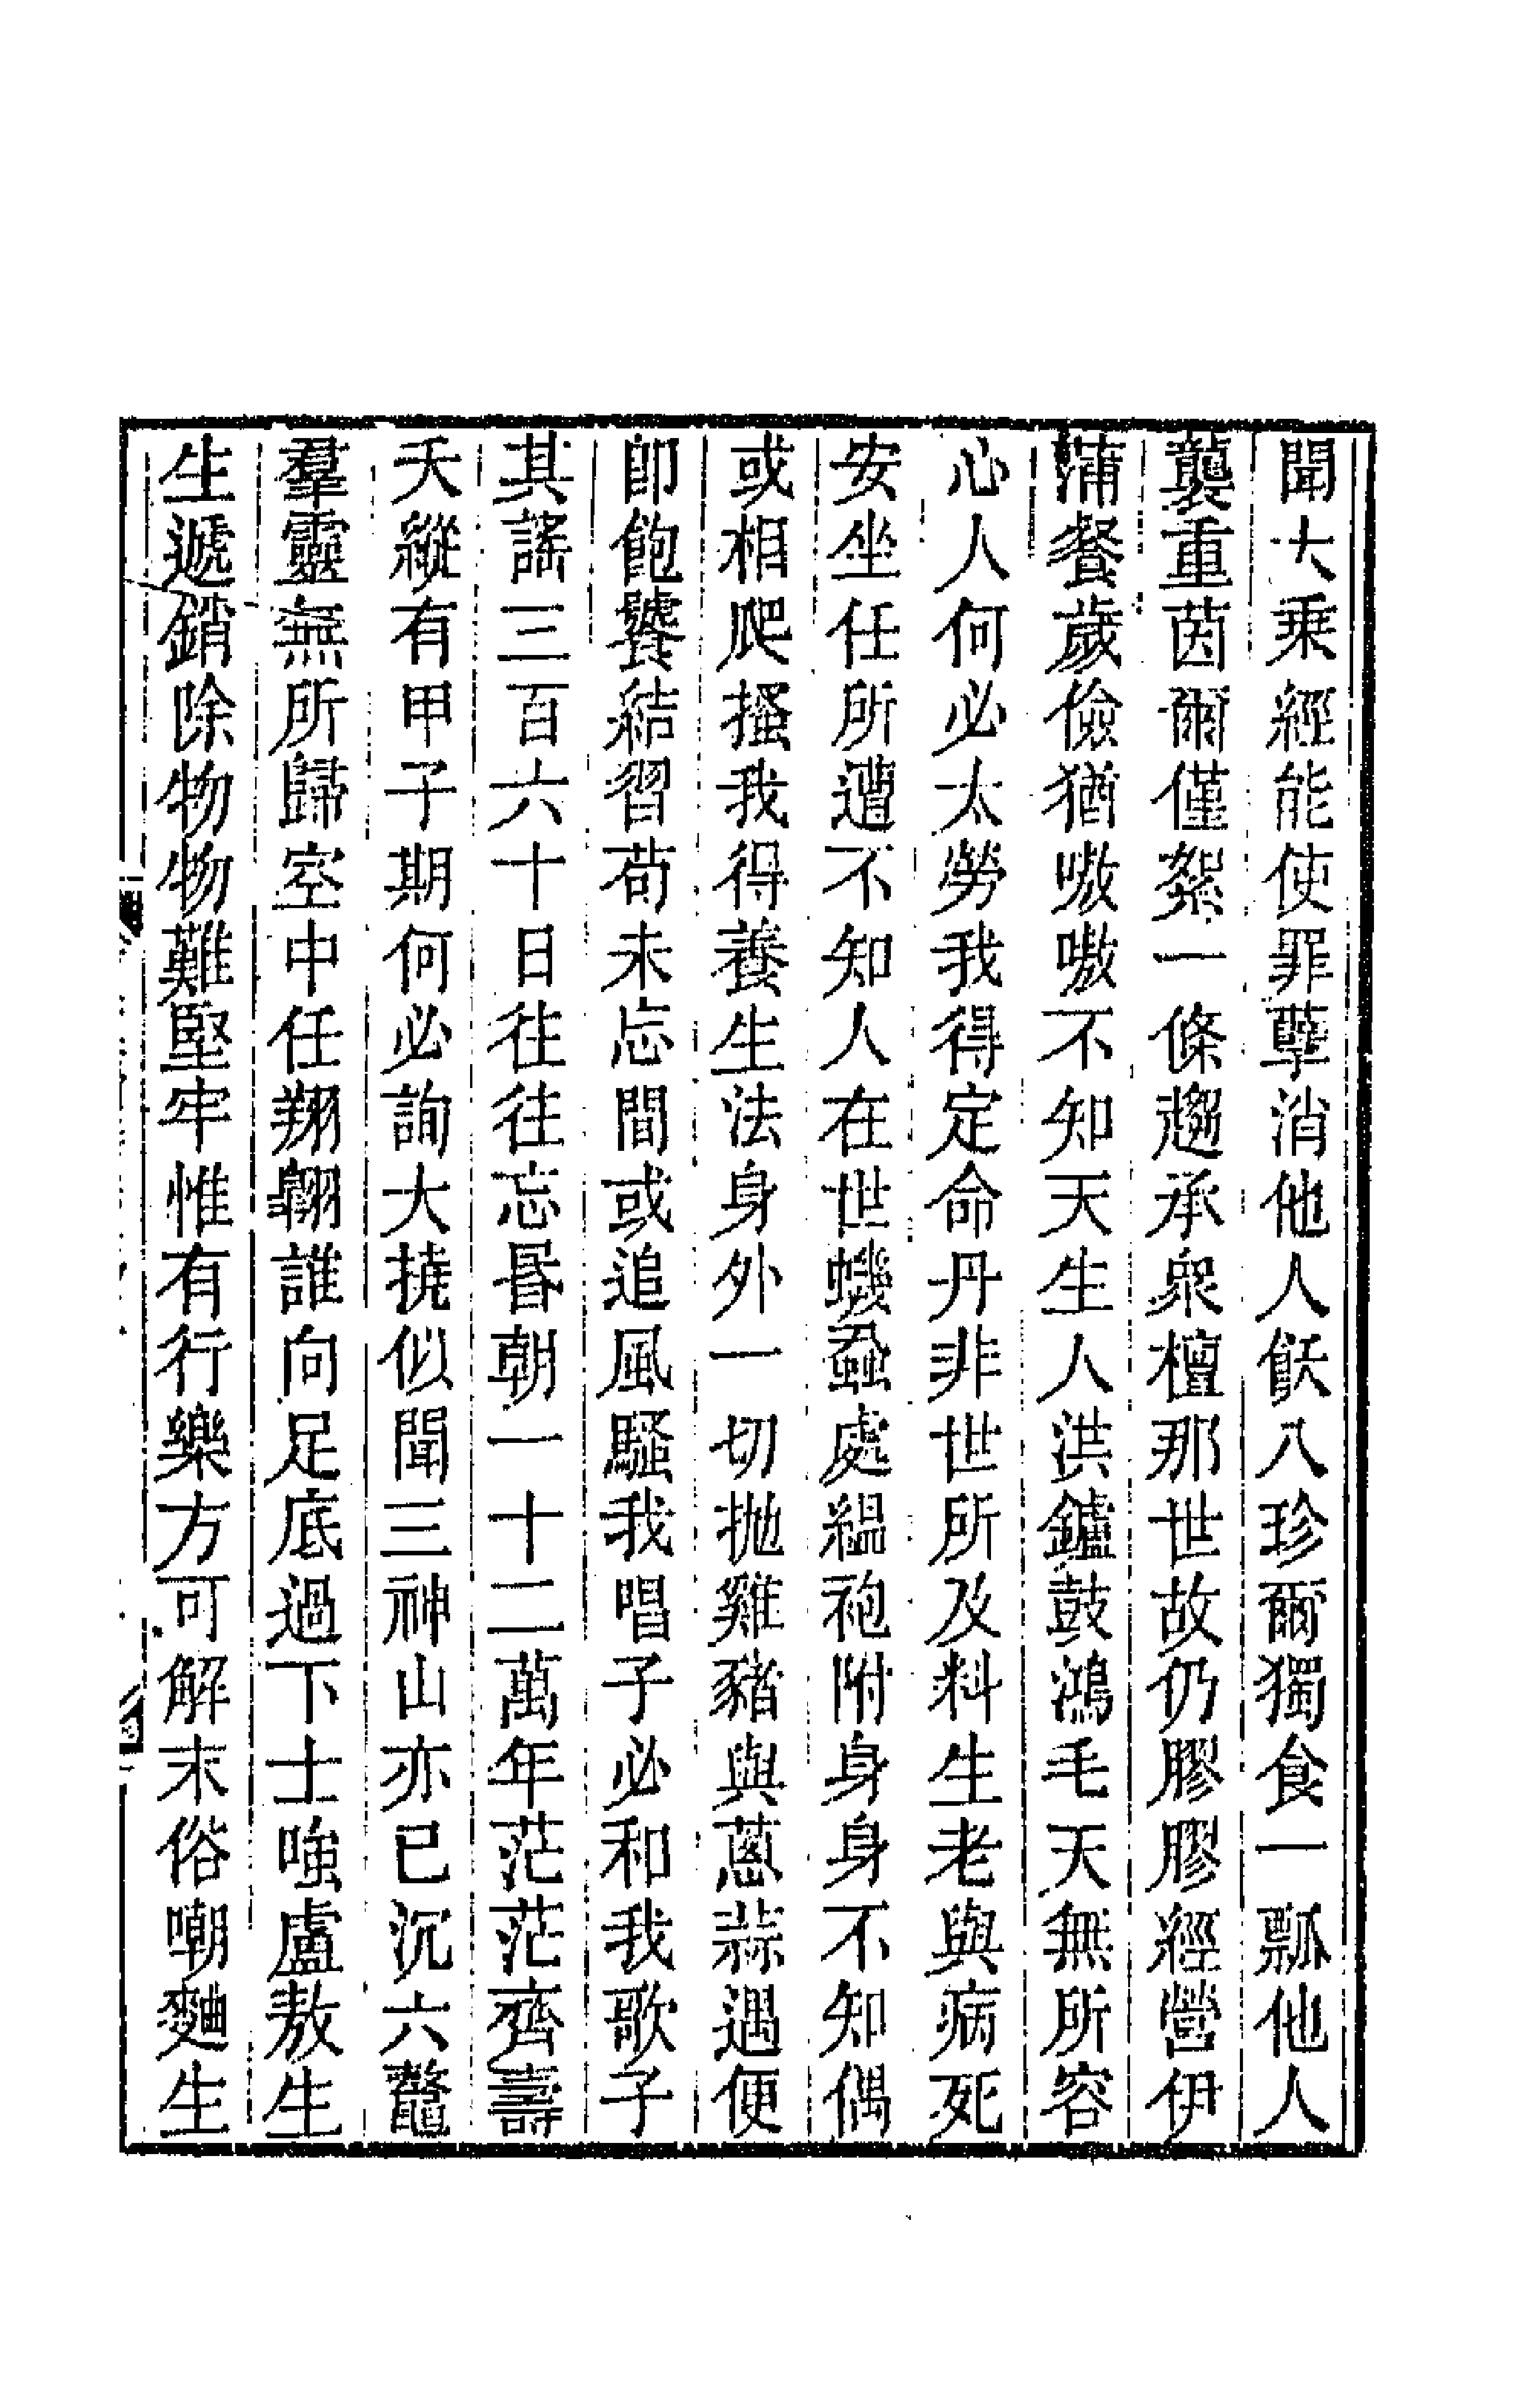 聞大乘經能使罪孽消他人飫八珍爾獨食一瓢他人
襲重茵爾僅絮一條趨承衆檀那世故仍膠膠經營伊
蒲餐歲儉猶嗷嗷不知天生人洪鑪鼓鴻毛天無所容
心人何必太勞我得定命丹非世所及料生老與病死
安坐任所遭不知人在世蟣蝨處縕袍附身身不知偶
或相爬搔我得養生法身外一切抛雞豬與蔥蒜遇便
即飽饕結習苟未忘間或追風騷我唱子必和我歌子
其謠三百六十日往往忘昬朝一十二萬年茫茫齊壽
夭縱有甲子期何必詢大撓似聞三神山亦已沉六鼇
羣靈無所歸空中任翔翺誰向足底過下士嗤盧敖生
生遞銷除物物難堅牢惟有行樂方可解末俗嘲麯生